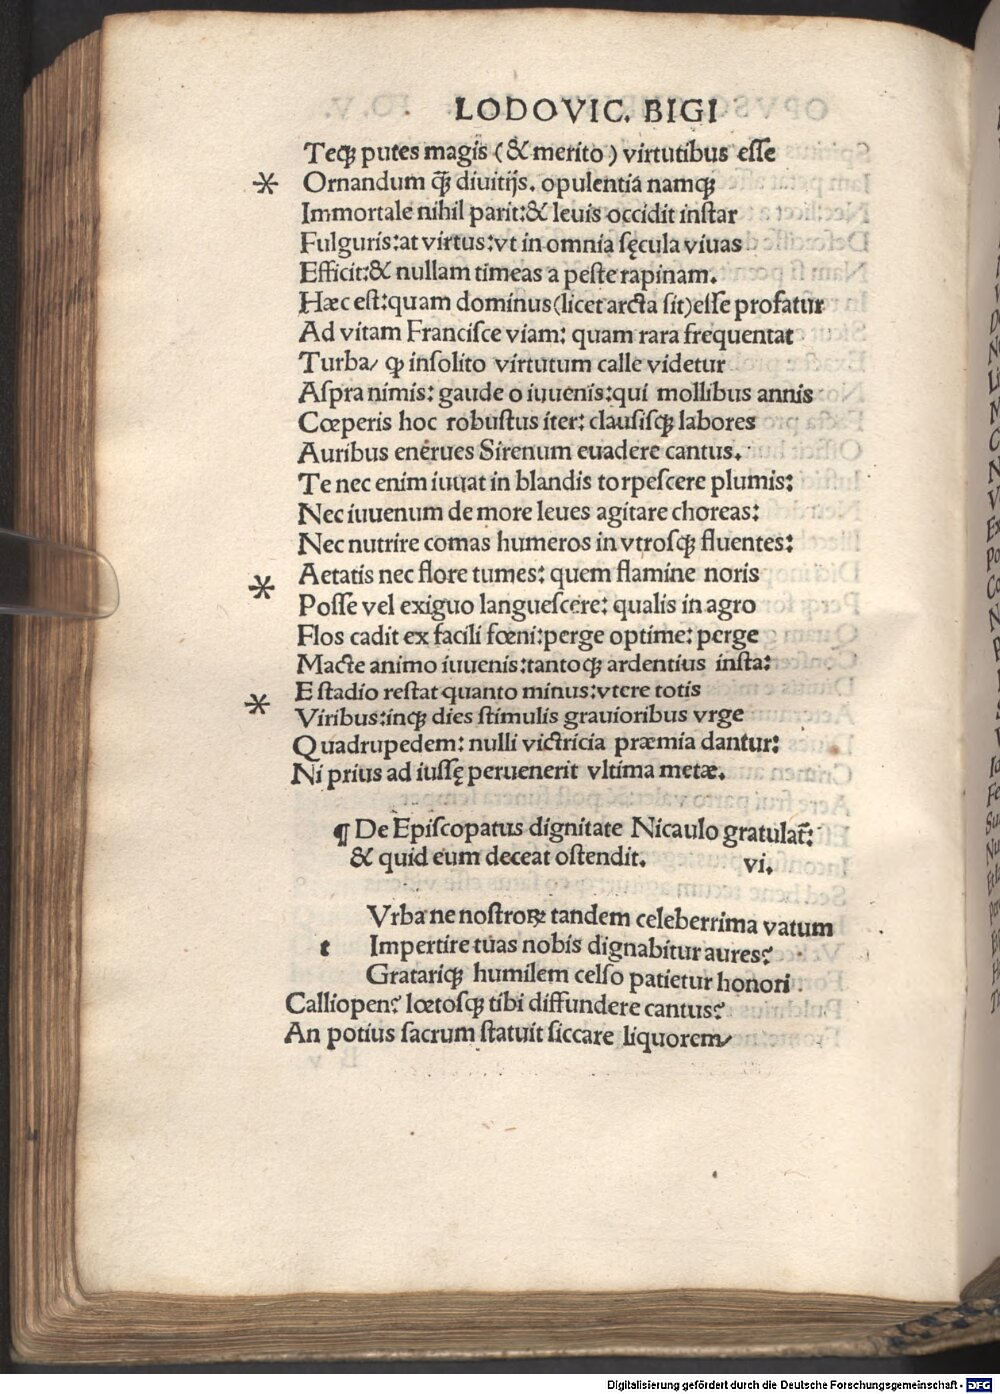 LODOVIC. BIGI
Teqꝫ putes magis (& merito) virtutibus eſſe
* Ornandum ꝗ̃ diuitijs. opulentia namqꝫ
Immortale nihil parit:& leuis occidit inſtar
Fulguris:at virtus:vt in omnia ſęcula viuas
Efficit:& nullam timeas a peſte rapinam.
Hæc eſt:quam dominus(licet arcta ſit)eſſe profatur
Ad vitam Franciſce viam: quam rara frequentat
Turba/ ꝙ inſolito virtutum calle videtur
Aſpra nimis: gaude o iuuenis:qui mollibus annis
Cœperis hoc robuſtus iter: clauſiſqꝫ labores
Auribus enerues Sirenum euadere cantus.
Te nec enim iuuat in blandis torpeſcere plumis:
Nec iuuenum de more leues agitare choreas:
Nec nutrire comas humeros in vtroſqꝫ fluentes:
* Aetatis nec flore tumes: quem flamine noris
Poſſe vel exiguo langueſcere: qualis in agro
Flos cadit ex facili fœni:perge optime: perge
Macte animo iuuenis:tantoqꝫ ardentius inſta:
* E ſtadio reſtat quanto minus:vtere totis
Viribus:inqꝫ dies ſtimulis grauioribus vrge
Quadrupedem: nulli victricia præmia dantur:
Ni prius ad iuſſę peruenerit vltima metæ.
¶ De Epiſcopatus dignitate Nicaulo gratulat᷑:
& quid eum deceat oſtendit. vi.
Vrba ne noſtroꝝ tandem celeberrima vatum
t Impertire tuas nobis dignabitur aures?
Gratariqꝫ humilem celſo patietur honori
Calliopen? lœtoſqꝫ tibi diffundere cantus?
An potius ſacrum ſtatuit ſiccare liquorem/
Digitalisierung gefördert durch die Deutsche Forschungsgemeinschaft - DFG